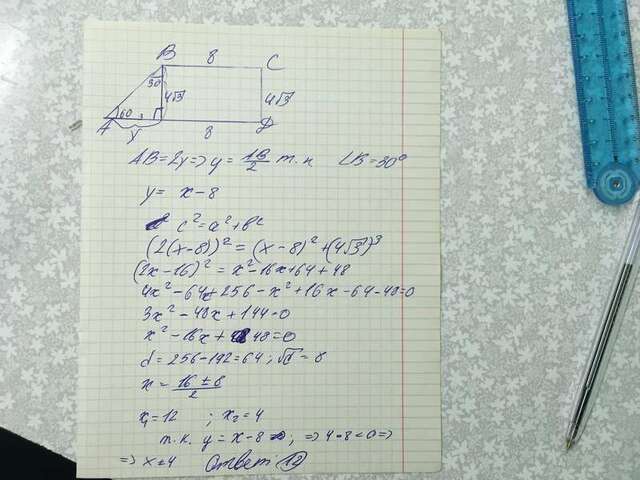 B 8 C
30
4√3 4√3
60
A y 8 D
AB=2y=>y=AB/2 т.к ∠B=30°
y= x-8
c²=a²+b²
(2(x-8))²=(x-8)²+(4√3)²
(2x-16)²=x²-16x+64+48
4x²-64x+256-x²+16x-64-48=0
3x²-48x+144=0
x²-16x+48=0
d=256-192=64; √d=8
x=(16±8)/2
x₁=12 ; x₂=4
т.к. y=x-8 , =>4-8<0=>
=>x≠4 Ответ 12